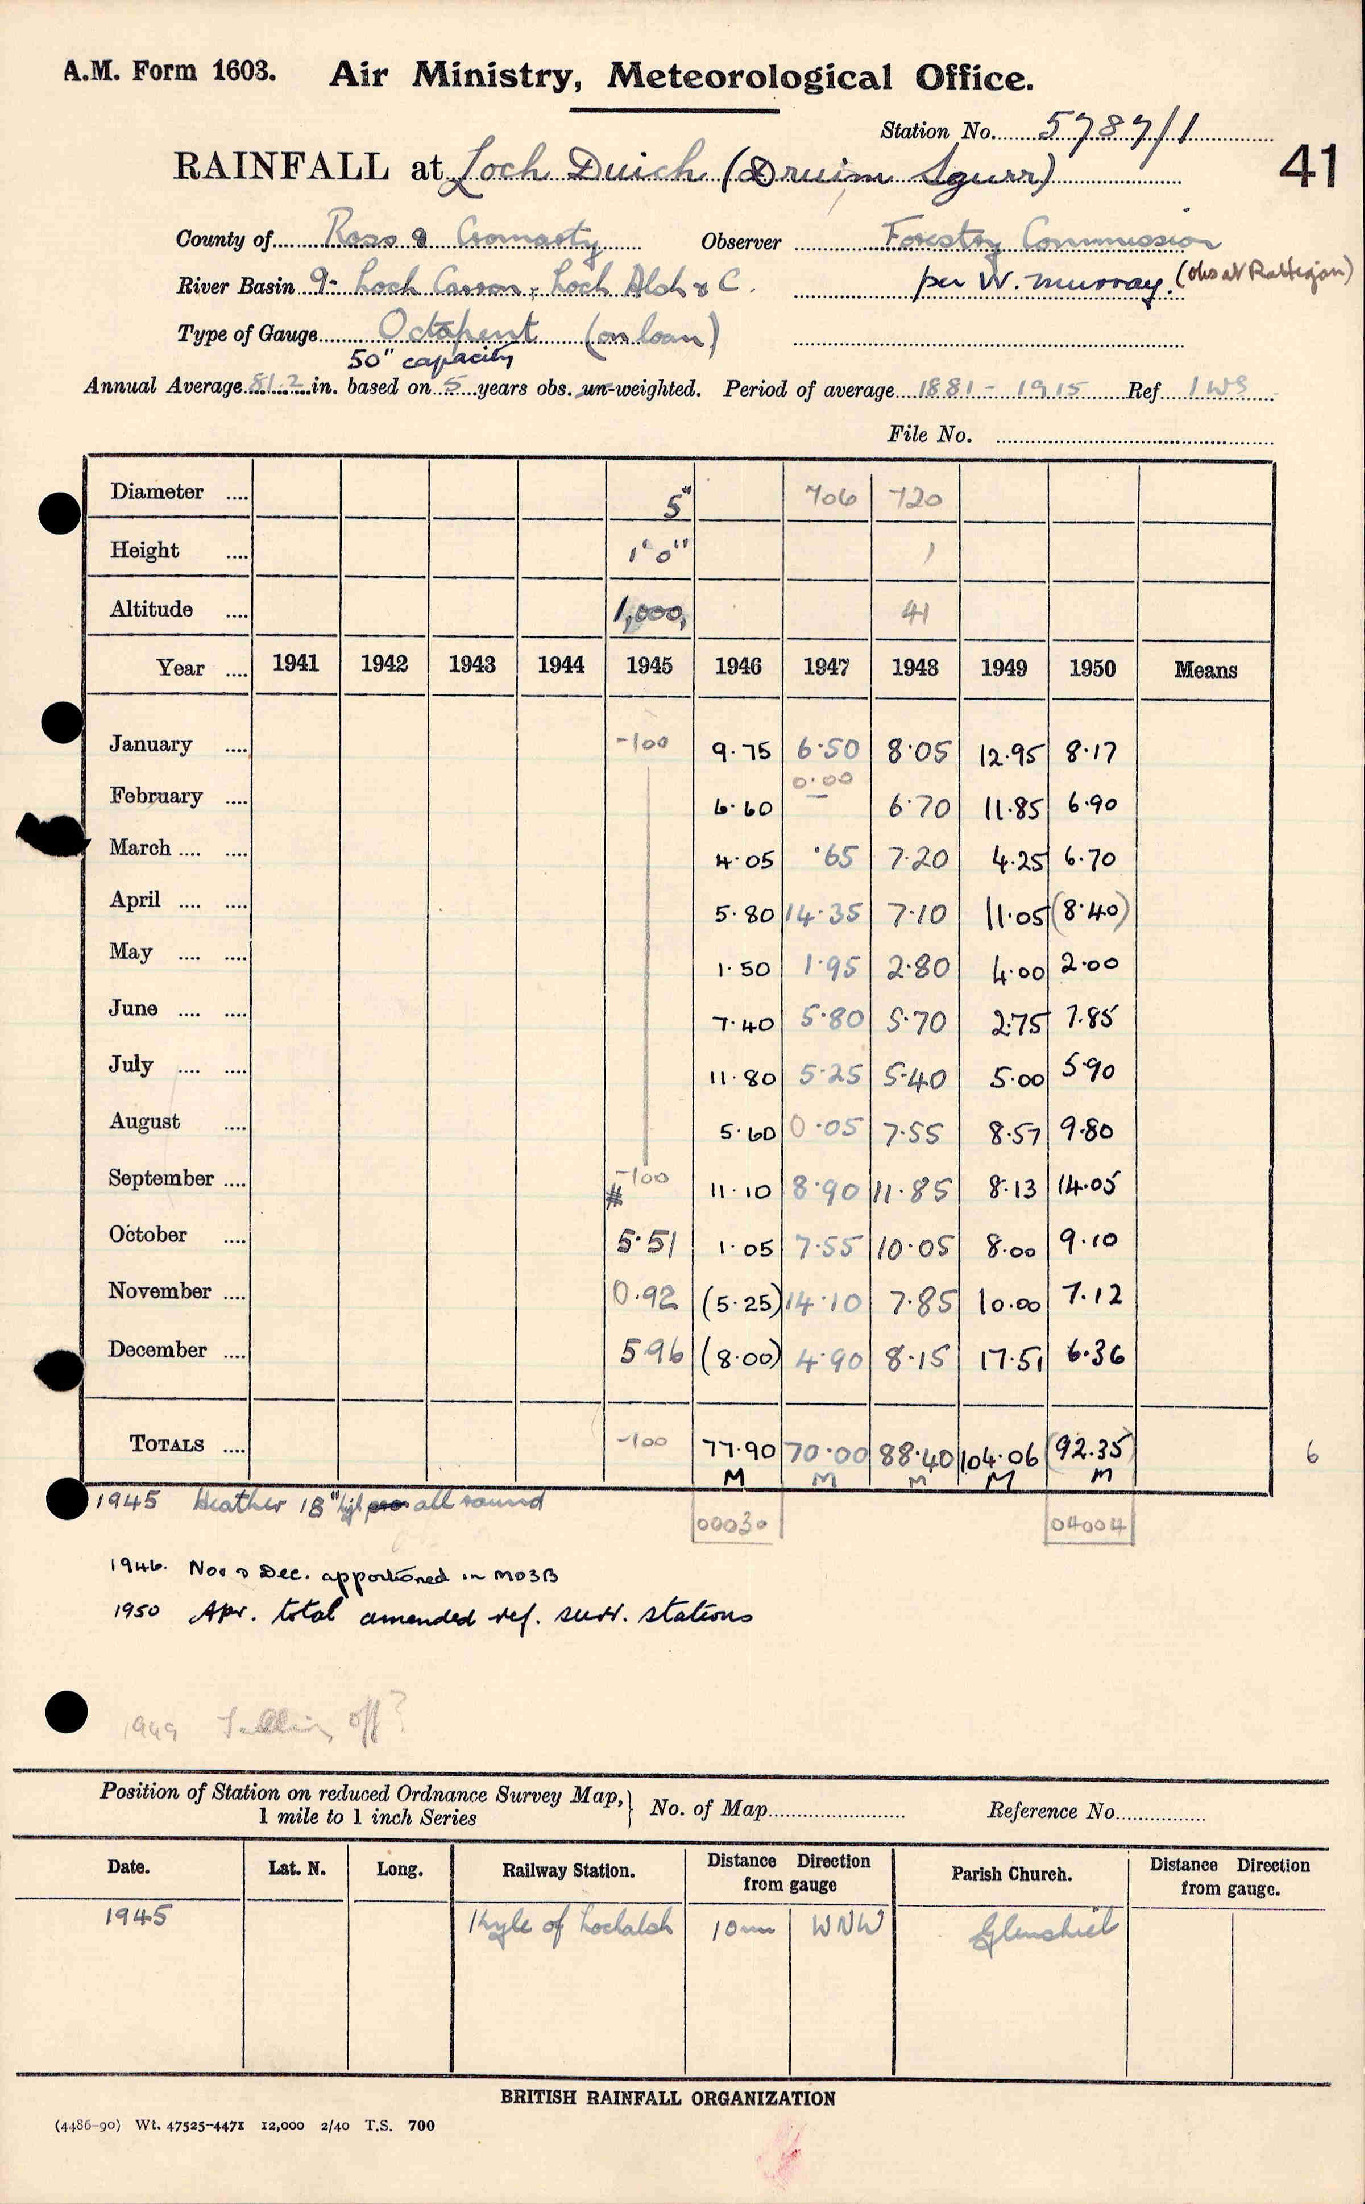 A.M. Form 1603. Air Ministry, Meteorological Office.
Station No. 5787/1
RAINFALL at Loch Duich (Druim Sgurr) 41
County of Ross & Cromarty Observer Forestry Commission
River Basin 9- Loch Carron, Loch Alsh & C. per W. Murray. (obs at Rattegan)
Type of Gauge Octapent (on loan)
50" capacity
Annual Average 81.2 in. based on 5 years obs. un-weighted. Period of average 1881 - 1915 Ref 1WS
File No.
Diameter .... 5" 706 720
Height .... 1' 0" 1
Altitude .... 1,000, 41
Year .... 1941 1942 1943 1944 1945 1946 1947 1948 1949 1950 Means
January .... -100 9.75 6.50 8.05 12.95 8.17
February .... 6.60 0.00 – 6.70 11.85 6.90
March .... .... 4.05 .65 7.20 4.25 6.70
April .... .... 5.80 14.35 7.10 11.05 (8.40)
May .... .... 1.50 1.95 2.80 4.00 2.00
June .... .... 7.40 5.80 5.70 2.75 7.85
July .... .... 11.80 5.25 5.40 5.00 5.90
August .... 5.60 0.05 7.55 8.57 9.80
September .... # -100 11.10 8.90 11.85 8.13 14.05
October .... 5.51 1.05 7.55 10.05 8.00 9.10
November .... 0.92 (5.25) 14.10 7.85 10.00 7.12
December .... 5.96 (8.00) 4.90 8.15 17.51 6.36
TOTALS .... -100 77.90 70.00 88.40 104.06 (92.35) 6
M M M M M
1945 Heather 18" high all round
00030 04004
1946. Nov & Dec. apportioned in MO3B
1950 Apr. total amended ref. surr. stations
1949 off?
Position of Station on reduced Ordnance Survey Map, 1 mile to 1 inch Series } No. of Map Reference No.
Date. Lat. N. Long. Railway Station. Distance Direction from gauge Parish Church. Distance Direction from gauge.
1945 Kyle of Lochalsh 10 m WNW Glenshiel
BRITISH RAINFALL ORGANIZATION
(4486-90) Wt. 47525-4471 12,000 2/40 T.S. 700